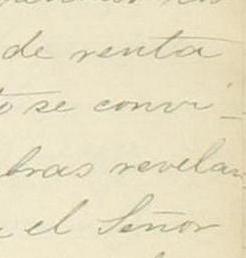 de renta
se convi-
bras revelan
el Señor